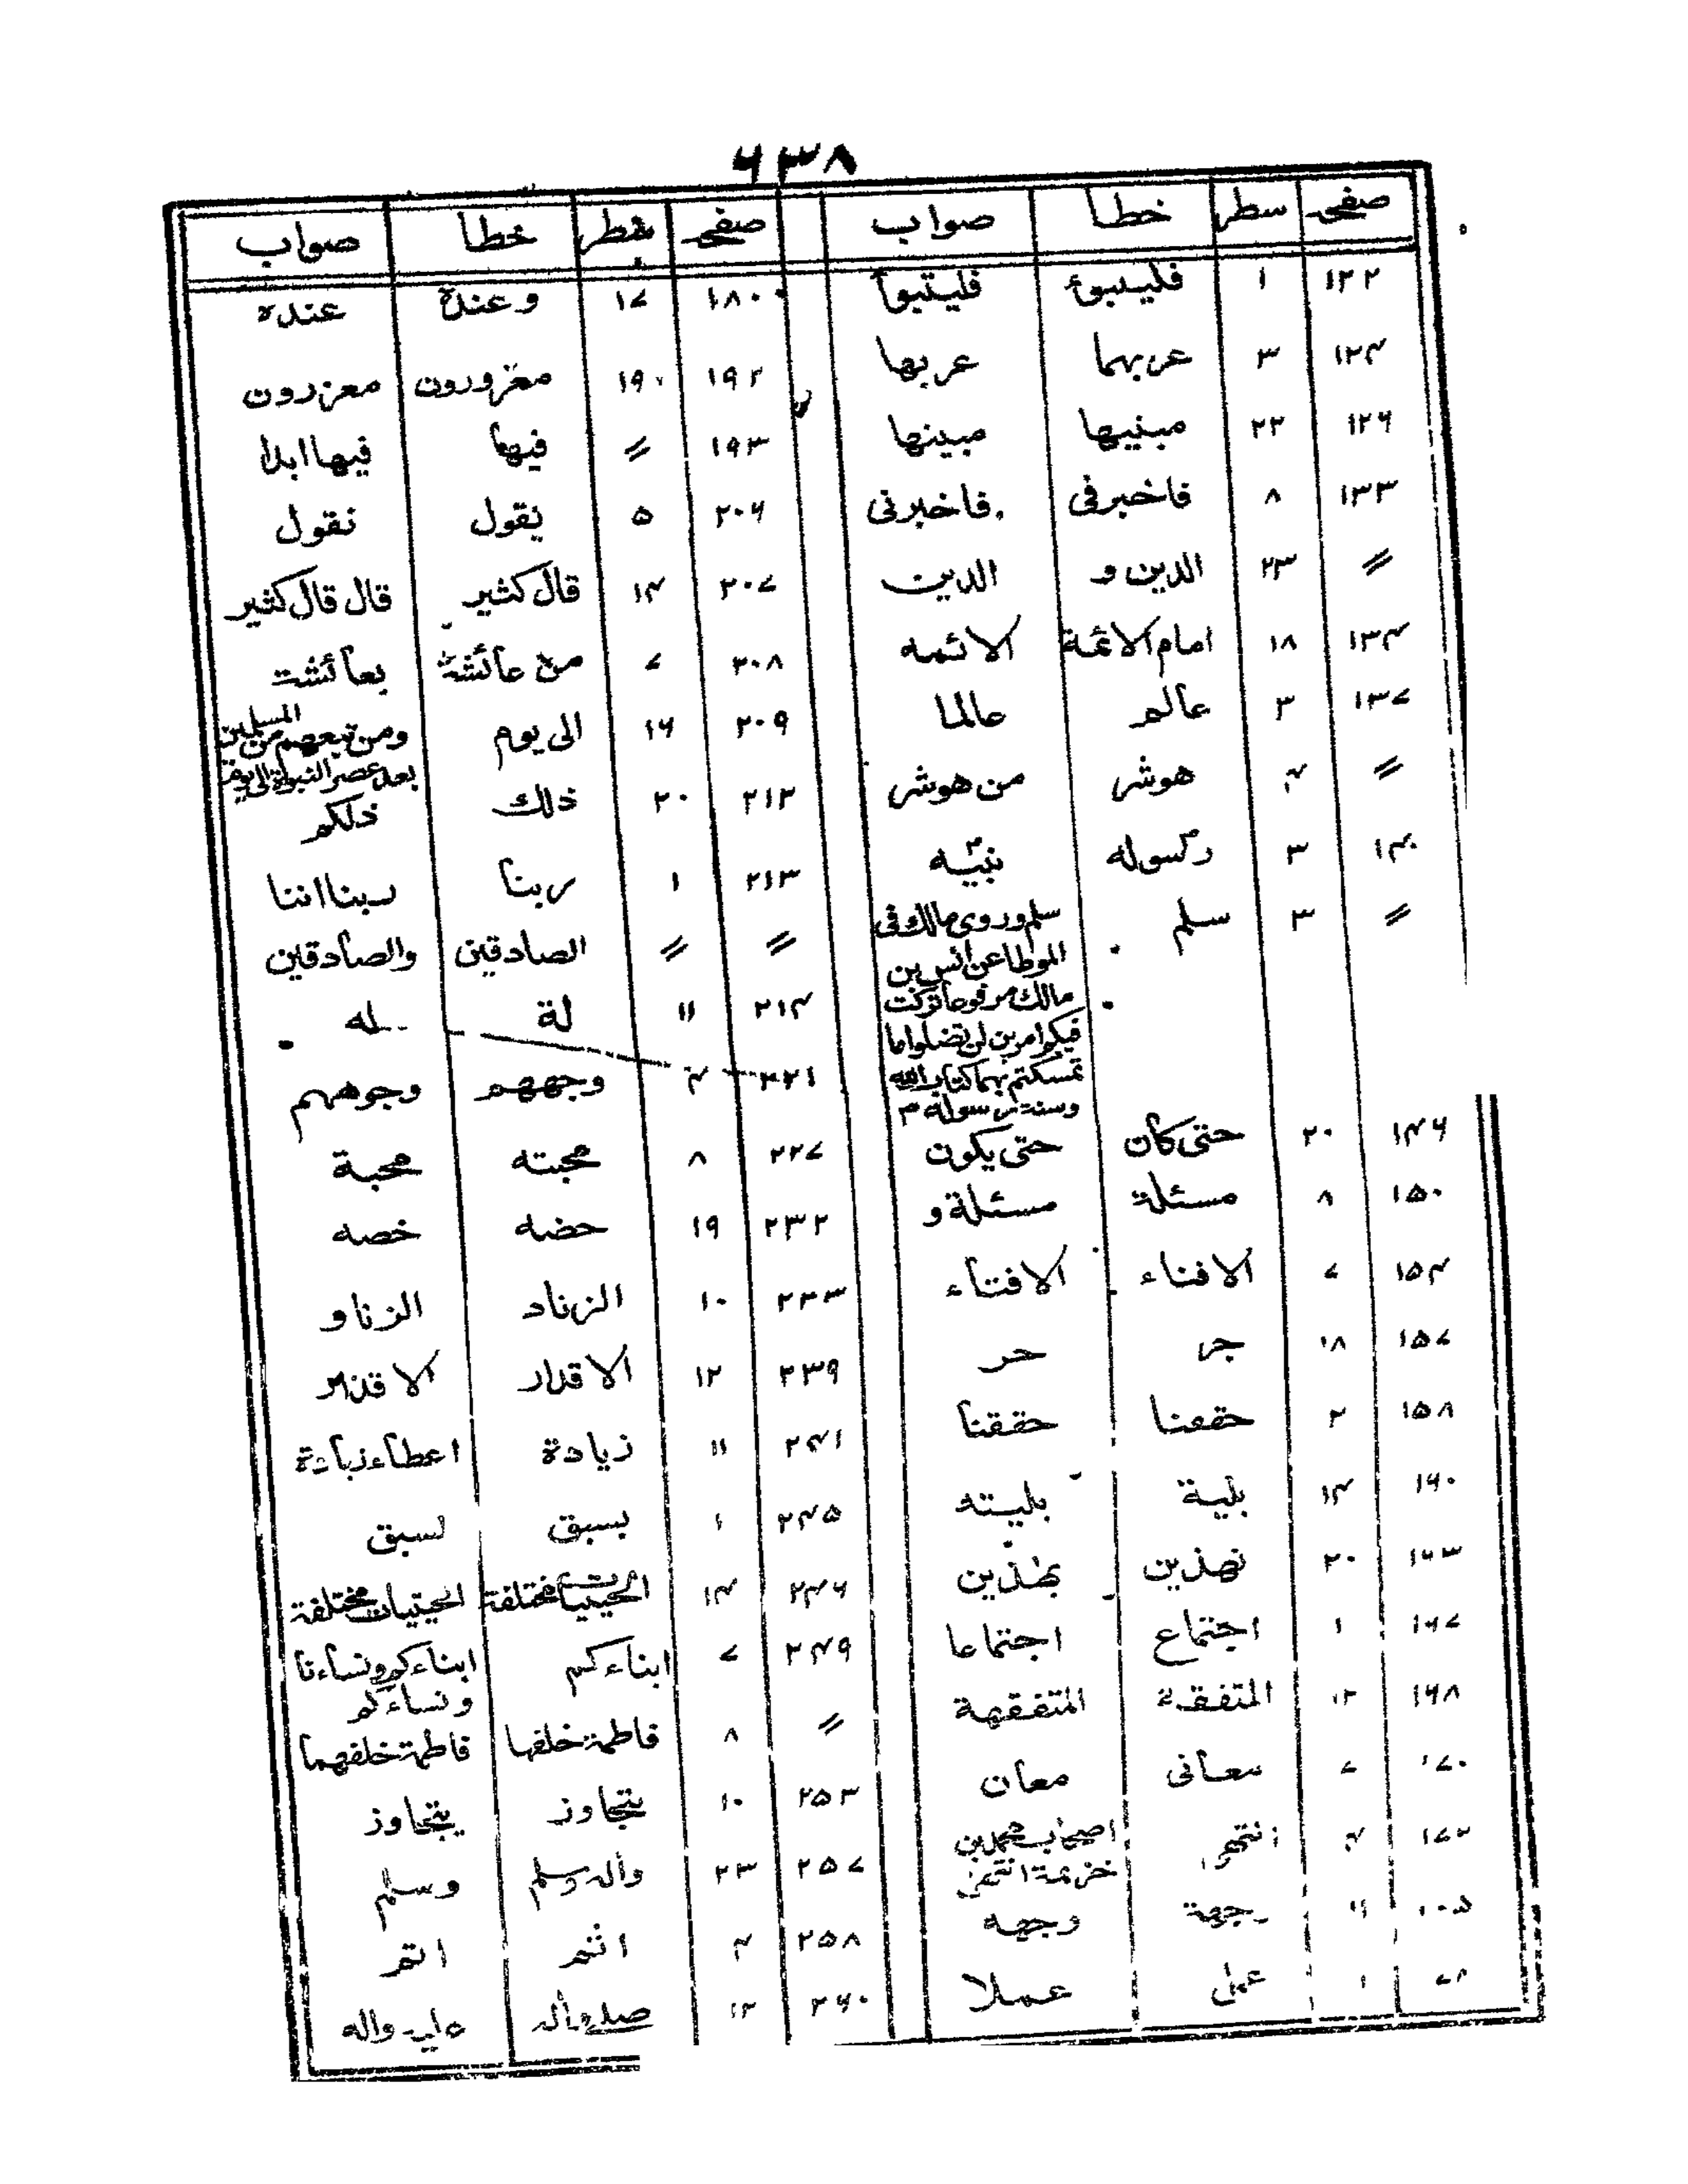 ۶۳۸
صفحہ سطر خطا صواب
۱۲۲ ۱ فليسبوئ فليتبوأ
۱۲۴ ۳ عربهما عربها
۱۲۶ ۲۲ مبنيها مبينها
۱۳۳ ۸ فاخبرفی فاخبرنی
〃 ۲۳ الدين و الدين
۱۳۴ ۱۸ امام الائمة الائمه
۱۳۷ ۳ عالم عالما
〃 ۴ هوشر من هوشر
۱۴۰ ۳ رسوله نبيّه
〃 ۳ سلم سلم وروی مالك فی
الموطا عن انس بن
مالك مرفوعا تركت
فيكم امرين لن تضلوا ما
تمسكتم بهما كتاب الله
وسنة رسوله م
۱۴۶ ۲۰ حتی كان حتی يكون
۱۵۰ ۸ مسئلة مسئلة و
۱۵۴ ۷ الافناء الافتاء
۱۵۷ ۱۸ جر حر
۱۵۸ ۲ حقعنا حققنا
۱۶۰ ۱۴ بلية بليته
۱۶۳ ۲۰ نهذين بهذين
۱۶۷ ۱ اجتماع اجتماعا
۱۶۸ ۱۲ المتفقة المتفقهة
۱۷۰ ۷ معانی معان
۱۷۲ ۴ انتهی اصحاب محمد بن
خزيمة انتهی
۱۱ وجهة وجهه
۱ عمل عملا
صفحہ سطر خطا صواب
۱۸۰ ۱۷ وعندة عندة
۱۹۲ ۱۹ معزورون معزرون
۱۹۳ 〃 فيها فيها ابدا
۲۰۶ ۵ يقول نقول
۲۰۷ ۱۴ قال كثير قال قال كثير
۲۰۸ ۷ من عائشة بعائشة
۲۰۹ ۱۶ الی يوم ومن تبعهم من المسلمين
بعد عصر النبوة الی يوم
۲۱۲ ۲۰ ذلك ذلكم
۲۱۳ ۱ ربنا ربنا اننا
〃 〃 الصادقين والصادقين
۲۱۴ ۱۱ لة له
۲۲۱ ۴ وجههم وجوههم
۲۲۷ ۸ محبته محبة
۲۳۲ ۱۹ حضه خصه
۲۳۳ ۱۰ الزناد الزنا و
۲۳۹ ۱۲ الاقدار الاقذار
۲۴۱ ۱۱ زيادة اعطاء زيادة
۲۴۵ ۱ بسبق لسبق
۲۴۶ ۱۴ الحيثيات مختلفة الحيثيات مختلفة
۲۴۹ ۷ ابناءكم ابناءكم ونساءنا
ونساءكم
〃 ۸ فاطمة خلفها فاطمة خلفهما
۲۵۳ ۱۰ نتجاوز يتجاوز
۲۵۷ ۲۳ وآله وسلم وسلم
۲۵۸ ۴ انتم
۲۶۰ ۱۲ عليه واله